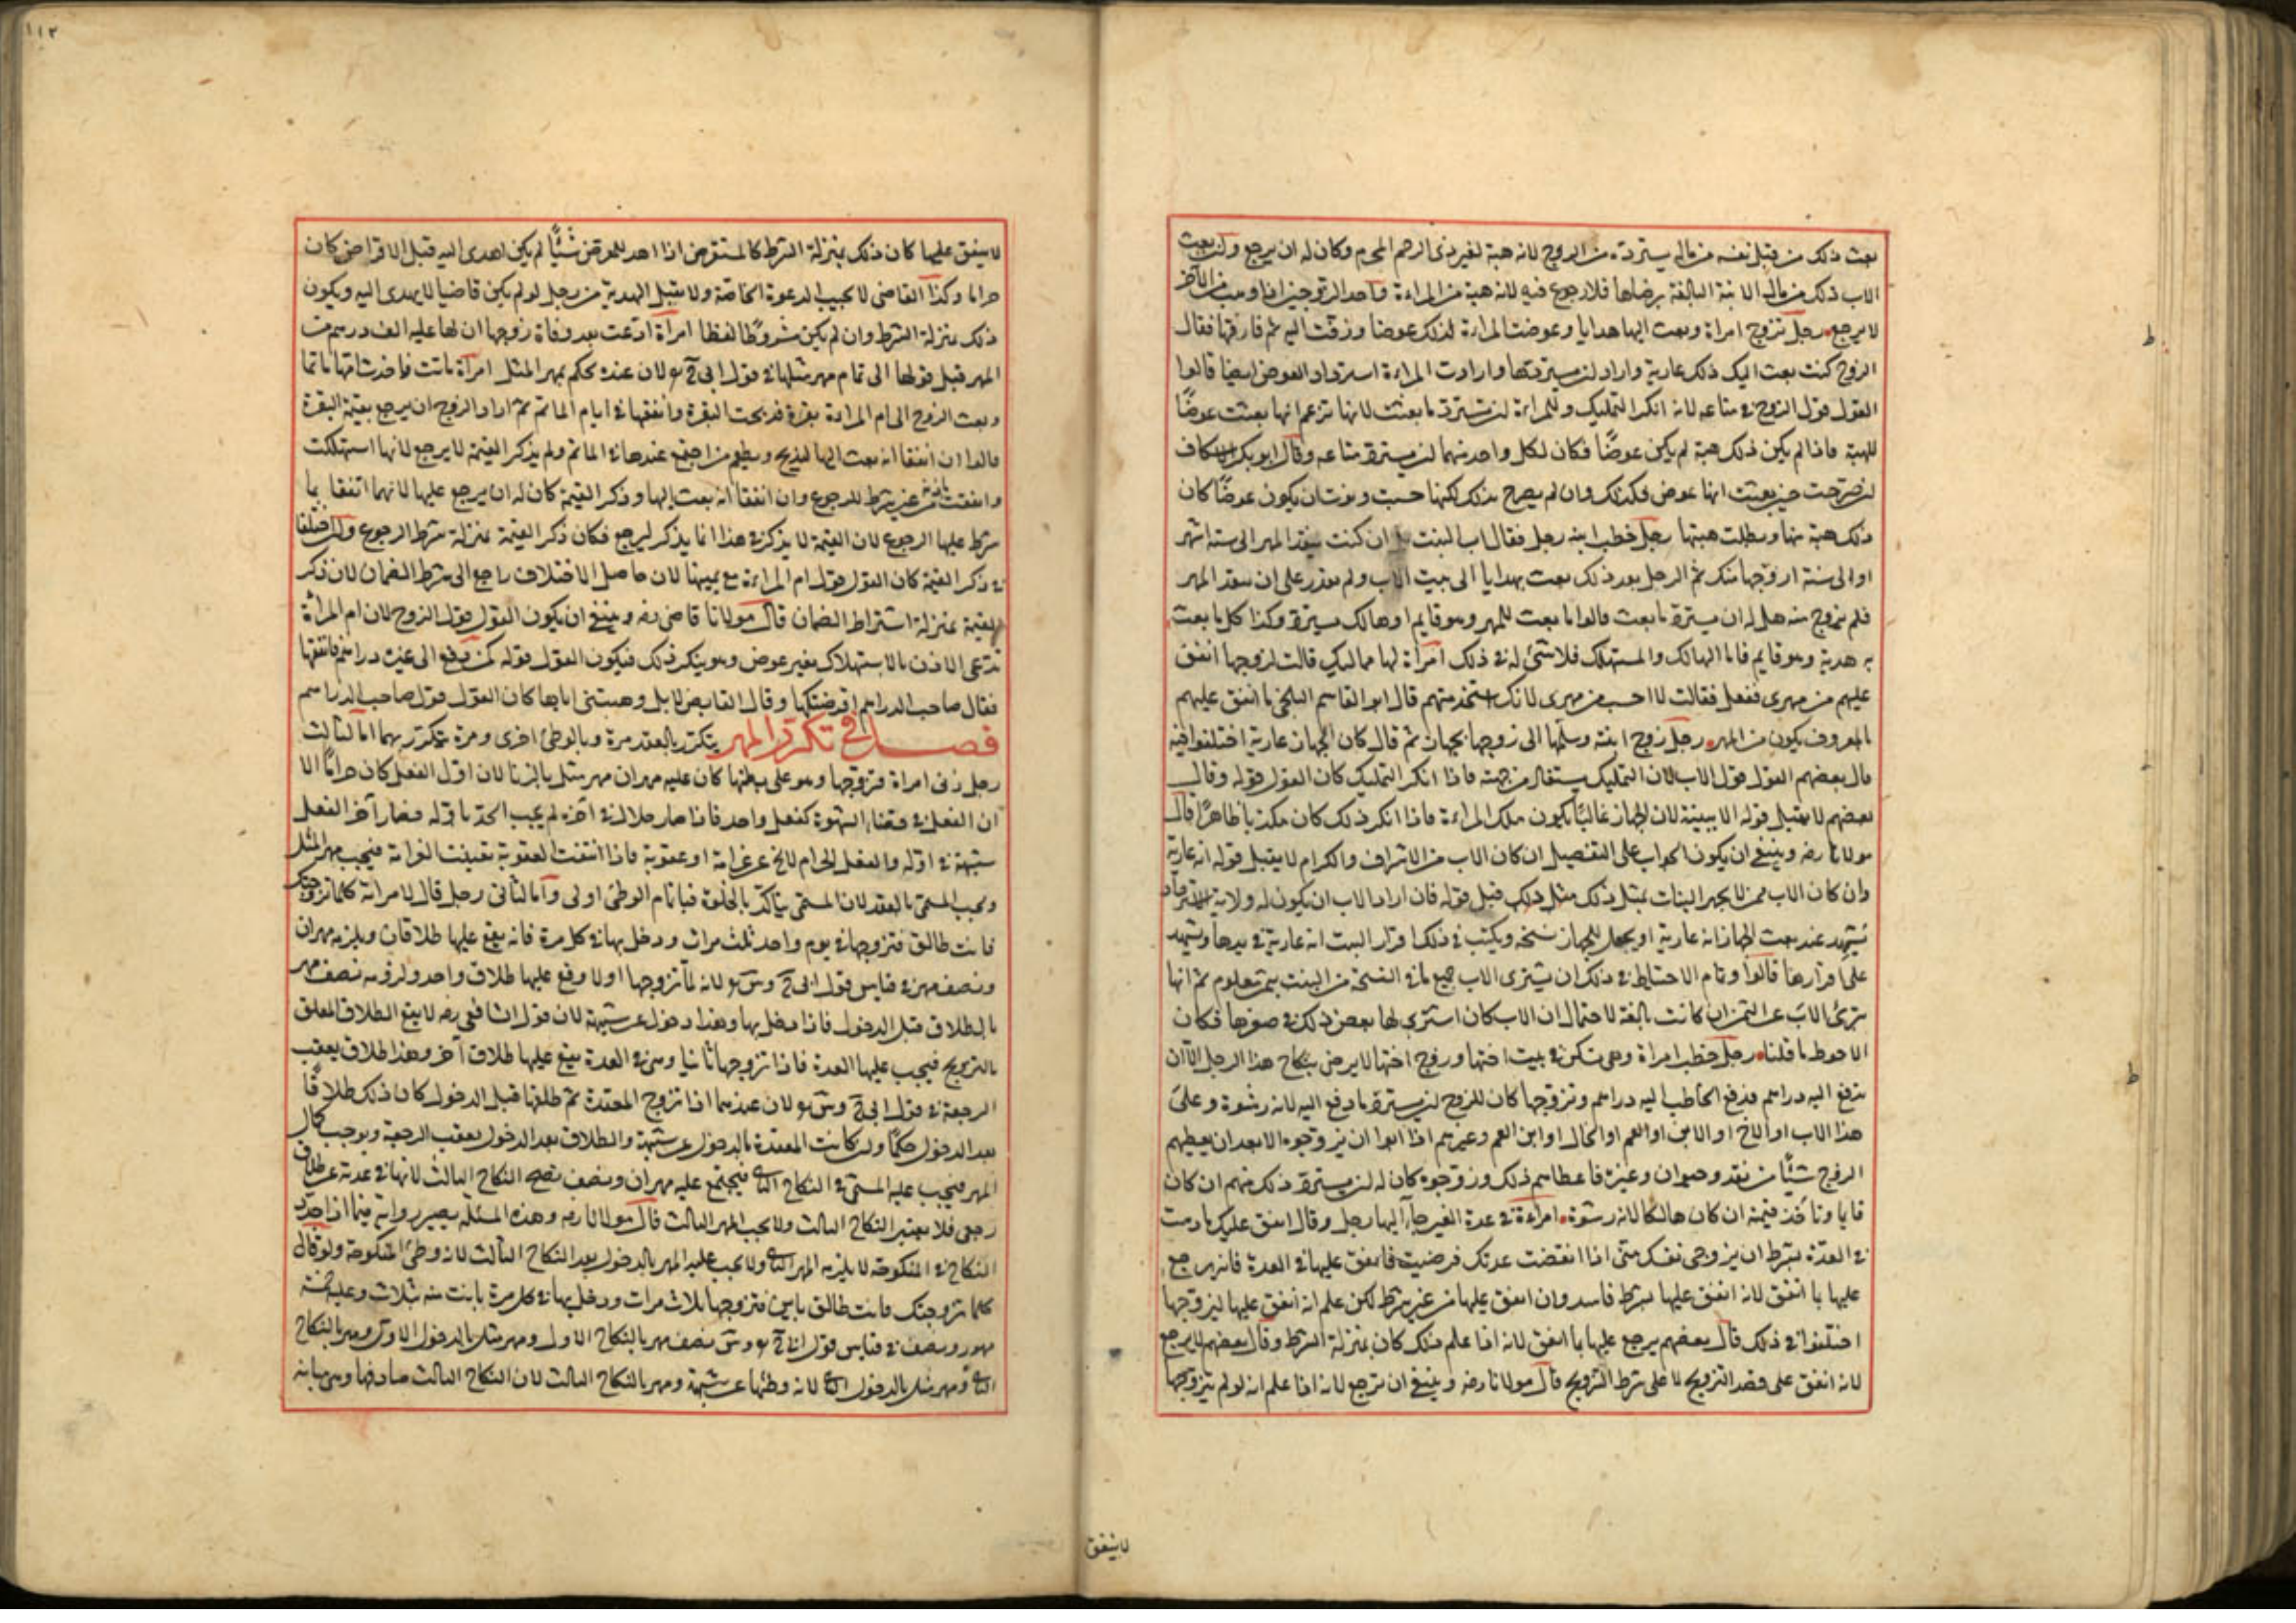 بعث ذلك من قبل نفسه من ماله يسترده من الزوج لانه هبة لغير ذي الرحم المحرم وكان له ان يرجع ولن بعث
الاب ذلك من مال الابنة البالغة برضاها فلا رجوع فيه لانه هبة من المراءة واحد الزوجين اذا وهب من الآخر
لا يرجع رجل تزوج امراة وبعث اليها هدايا وعوضت المراءة لذلك عوضا وزفت اليه ثم فارقها فقال
الزوج كنت بعث اليك ذلك عارية واراد لن يسترد ها وارادت المراءة استرداد العوض ايضا قالوا
القول قول الزوج في متاعه لانه انكر التمليك وللمراءة لن تسترد ما بعثت لانها تزعم انها بعثت عوضًا
للهبة فاذا لم يكن ذلك هبة لم يكن عوضًا فكان لكل واحد منهما لن يسترد متاعه وقال ابو بكر الاسكاف
لن صرحت حين بعثت انها عوض فكذلك وان لم يصرح بذلك لكنها حسبت ونوت ان يكون عوضًا كان
ذلك هبة منها وبطلت هبتها رجل خطب ابنة رجل فقال اب البنت ان كنت تنقد المهر الى ستة اشهر
او الى سنة ازوجها منك ثم الرجل بعد ذلك بعث بهدايا الى بيت الاب ولم يقدر على ان ينقد المهر
فلم يزوج منه هل له ان يسترد ما بعث قالوا ما بعث للمهر وهو قايم او هالك يسترد وكذا كل ما بعث
به هدية وهو قايم فاما الهالك والمستهلك فلا شئ له في ذلك امراة لها مماليك قالت لزوجها انفق
عليهم من مهري ففعل فقالت لا احسب من مهري لانك استخدمتهم قال ابو القاسم البلخي ما انفق عليهم
بالمعروف يكون من المهر رجل زوج ابنته وسلمها الى زوجها بجهاز ثم قال كان الجهاز عارية اختلفوا فيه
قال بعضهم القول قول الاب لان التمليك يستفاد من جهته فاذا انكر التمليك كان القول قوله وقال
بعضهم لا يقبل قوله الا ببينة لان الجهاز غالبًا يكون ملك المراءة فاذا انكر ذلك كان مكذبا ظاهرًا قال
مولانا رضه وينبغي ان يكون الجواب على التفصيل ان كان الاب من الاشراف والكرام لا يقبل قوله انه عارية
وان كان الاب ممن لا يجهز البنات بمثل ذلك قبل قوله فان اراد الاب ان يكون له ولاية الاسترداد
يشهد عند بعث الجهاز انه عارية او يجعل للجهاز نسخة ويكتب في ذلك اقرار البنت انه عارية في يدها ويشهد
على اقرارها قالوا وتمام الاحتياط في ذلك ان يشتري الاب جميع ما في النسخة من البنت بثمن معلوم ثم انها
تبرئ الاب عن الثمن ان كانت بالغة لاحتمال ان الاب كان اشترى لها بعض ذلك في صغرها فكان
الاحوط ما قلنا رجل خطب امراة وهي تسكن في بيت اختها وزوج اختها لا يرضى بنكاح هذا الرجل الا ان
يدفع اليه دراهم فدفع الخاطب اليه دراهم وتزوجها كان للزوج لن يسترد ما دفع اليه لانه رشوة وعلى
هذا الاب او الاخ او الابن او العم او الخال او ابن العم وغيرهم اذا ابوا ان يزوجوه الا بعد ان يعطيهم
الزوج شيئًا من نقد وحيوان وغيره فاعطاهم ذلك وزوجوه كان له لن يسترد ذلك منهم ان كان
قايما وتاخذ قيمته ان كان هالكا لانه رشوة امراءة في عدة الغير جاء اليها رجل وقال انفق عليك ما دمت
في العدة بشرط ان تزوجي نفسك مني اذا انقضت عدتك فرضيت فانفق عليها في العدة فانه يرجع
عليها بما انفق لانه انفق عليها بشرط فاسد وان انفق عليها من غير شرط لكن علم انه انفق عليها ليتزوجها
اختلفوا في ذلك قال بعضهم يرجع عليها بما انفق لانه اذا علم ذلك كان بمنزلة الشرط وقال بعضهم لا يرجع
لانه انفق على قصد التزويج لا على شرط التزويج قال مولانا رضه وينبغي ان ترجع لانه اذا علم انه لو لم يتزوجها
لا ينفق
١١٢
لا ينفق عليها كان ذلك بمنزلة الشرط كالمستقرض اذا اهدى للمقرض شيئًا لم يكن اهدى اليه قبل الاقراض كان
حراما وكذا القاضي لا يجيب الدعوة الخاصة ولا يقبل الهدية من رجل لو لم يكن قاضيا لا يهدى اليه ويكون
ذلك بمنزلة الشرط وان لم يكن مشروطًا لفظا امراة ادعت بعد وفاة زوجها ان لها عليه الف درهم من
المهر قبل قولها الى تمام مهر مثلها في قول ابي ح لان عنده يحكم بمهر المثل امراة ماتت فاتخذت امها ماتما
وبعث الزوج الى ام المراءة بقرة فذبحت البقرة وانفقتها في ايام الماتم ثم اراد الزوج ان يرجع بقيمة البقرة
قالوا ان اتفقا انه بعث اليها لتذبح وتطعم من اجتمع عندها في الماتم ولم يذكر القيمة لا يرجع لانها استهلكت
وانفقت باذنه من غير شرط الرجوع وان اتفقا انه بعث اليها وذكر القيمة كان له ان يرجع عليها لانهما اتفقا بما
شرط عليها الرجوع لان القيمة لا يذكر في هذا انما يذكر ليرجع فكان ذكر القيمة بمنزلة شرط الرجوع ولن اختلفا
في ذكر القيمة كان القول قول ام المراءة مع يمينها لان حاصل الاختلاف راجع الى شرط الضمان لان ذكر
القيمة بمنزلة اشتراط الضمان قال مولانا قاضي رضه وينبغي ان يكون القول قول الزوج لان ام المراة
تدعي الاذن بالاستهلاك بغير عوض وهو ينكر ذلك فيكون القول قوله كمن دفع الى غيره دراهم فانفقها
فقال صاحب الدراهم اقرضتكها وقال القابض لا بل وهبتني اياها كان القول قول صاحب الدراهم
فصل في تكرر المهر يتكرر بالعقد مرة وبالوطئ اخرى ومرة يتكرر بهما اما الثالث
رجل زنى امراة فتزوجها وهو على بطنها كان عليه مهران مهر مثل بالزنا لان اول الفعل كان حرامًا الا
ان الفعل في قضاء الشهوة كفعل واحد فاذا صار حلالا في آخره لم يجب الحد باوله فصار آخر الفعل
شبهة في اوله والفعل الحرام لا يخ عن غرامة او عقوبة فاذا انتفت العقوبة تعينت الغرامة فيجب مهر المثل
ويجب المسمى بالعقد لان المسمى يتاكد بالخلوة فباتمام الوطئ اولى واما الثاني رجل قال لامراته كلما تزوجتك
فانت طالق فتزوجها في يوم واحد ثلث مرات ودخل بها في كل مرة فانه يقع عليها طلاقان ويلزمه مهران
ونصف مهر في قياس قول ابي ح وس لانه لما تزوجها اولا وقع عليها طلاق واحد ولزمه نصف مهر
بالطلاق قبل الدخول فاذا دخل بها وهذا دخول عن شبهة لان قول الشافعي رضه لا يقع الطلاق المعلق
بالتزويج فيجب عليها العدة فاذا تزوجها ثانيا وهي في العدة يقع عليها طلاق آخر وهذا طلاق يعقب
الرجعة في قول ابي ح وس لان عندهما اذا تزوج المعتدة ثم طلقها قبل الدخول كان ذلك طلاقًا
بعد الدخول حكمًا ولن كانت المعتدة بالدخول عن شبهة والطلاق بعد الدخول يعقب الرجعة ويوجب كمال
المهر فيجب عليه المسمى في النكاح الثاني فيجتمع عليه مهران ونصف ولم يصح النكاح الثالث لانها في عدة عن طلاق
رجعي فلا يعتبر النكاح الثالث ولا يجب المهر الثالث قال مولانا رضه وهذه المسئلة يصير رواية فيما اذا جدد
النكاح في المنكوحة لا يلزمه المهر الثاني ولا يجب عليه المهر بالدخول بعد النكاح الثالث لانه وطئ المنكوحة ولو قال
كلما تزوجتك فانت طالق باين فتزوجها ثلاث مرات ودخل بها في كل مرة بانت منه بثلاث وعليه خمسة
مهور ونصف في قياس قول ابي ح وس نصف مهر بالنكاح الاول ومهر مثل بالدخول الاول ومهر بالنكاح
الثاني ومهر مثل بالدخول الثاني لانه وطئها عن شبهة ومهر بالنكاح الثالث لان النكاح الثالث صادفها وهي مبانة